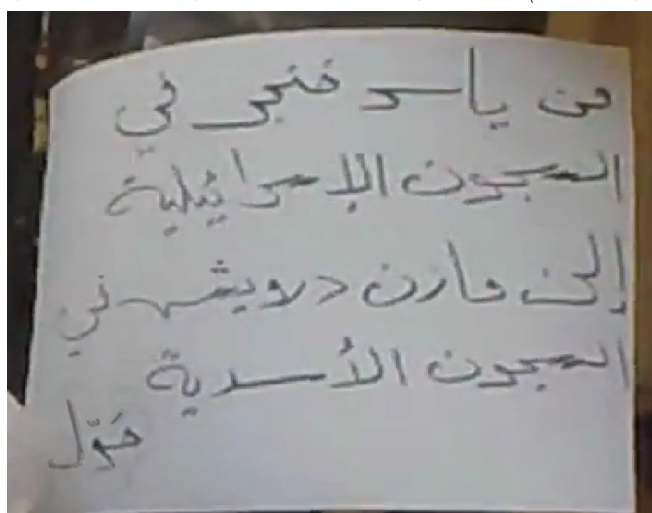 من ياسر خنجر في
السجون الإسرائيلية
إلى مازن درويش في
السجون الأسدية